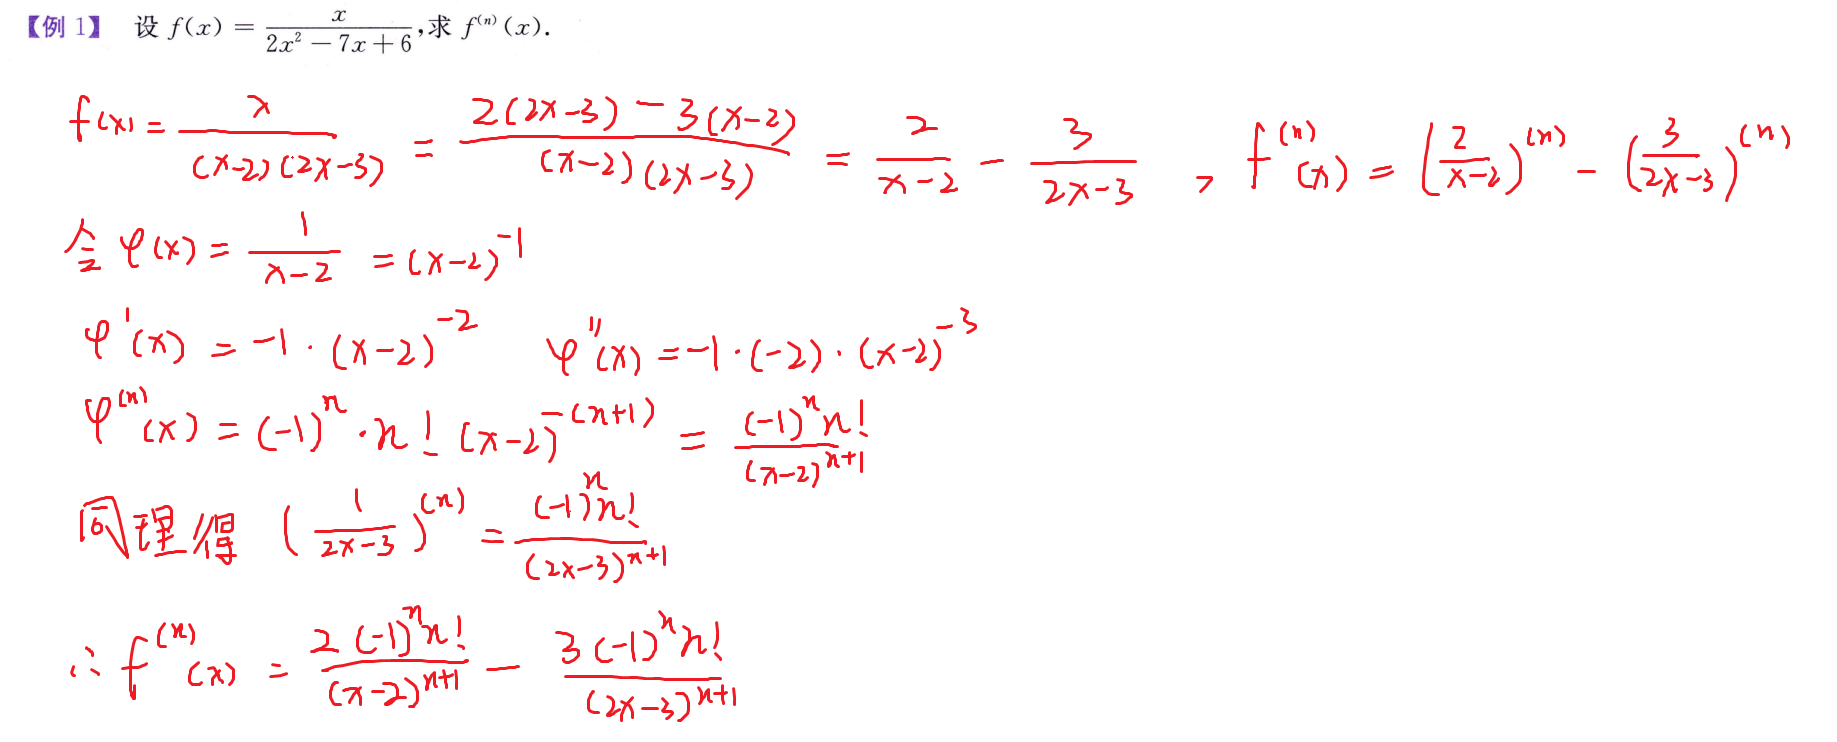 【例 1】 设 f(x) = x/(2x² − 7x + 6), 求 f⁽ⁿ⁾(x).
f(x) = x/((x−2)(2x−3)) = (2(2x−3) − 3(x−2))/((x−2)(2x−3)) = 2/(x−2) − 3/(2x−3) , f⁽ⁿ⁾(x) = (2/(x−2))⁽ⁿ⁾ − (3/(2x−3))⁽ⁿ⁾
令 φ(x) = 1/(x−2) = (x−2)⁻¹
φ'(x) = −1·(x−2)⁻² φ''(x) = −1·(−2)·(x−2)⁻³
φ⁽ⁿ⁾(x) = (−1)ⁿ·n! (x−2)^−(n+1) = (−1)ⁿn!/(x−2)ⁿ⁺¹
同理得 (1/(2x−3))⁽ⁿ⁾ = (−1)ⁿn!/(2x−3)ⁿ⁺¹
∴ f⁽ⁿ⁾(x) = 2(−1)ⁿn!/(x−2)ⁿ⁺¹ − 3(−1)ⁿn!/(2x−3)ⁿ⁺¹